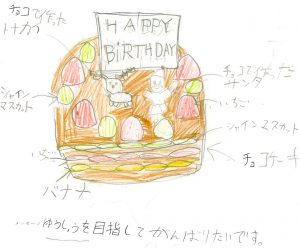 チョコで作った
トナカイ
HAPPY
BiRTHDAY
シャイン
マスカット
チョコで作った
サンタ
いちご
シャインマスカット
いちご
チョコケーキ
バナナ
ゆうしょうを目指してがんばりたいです。